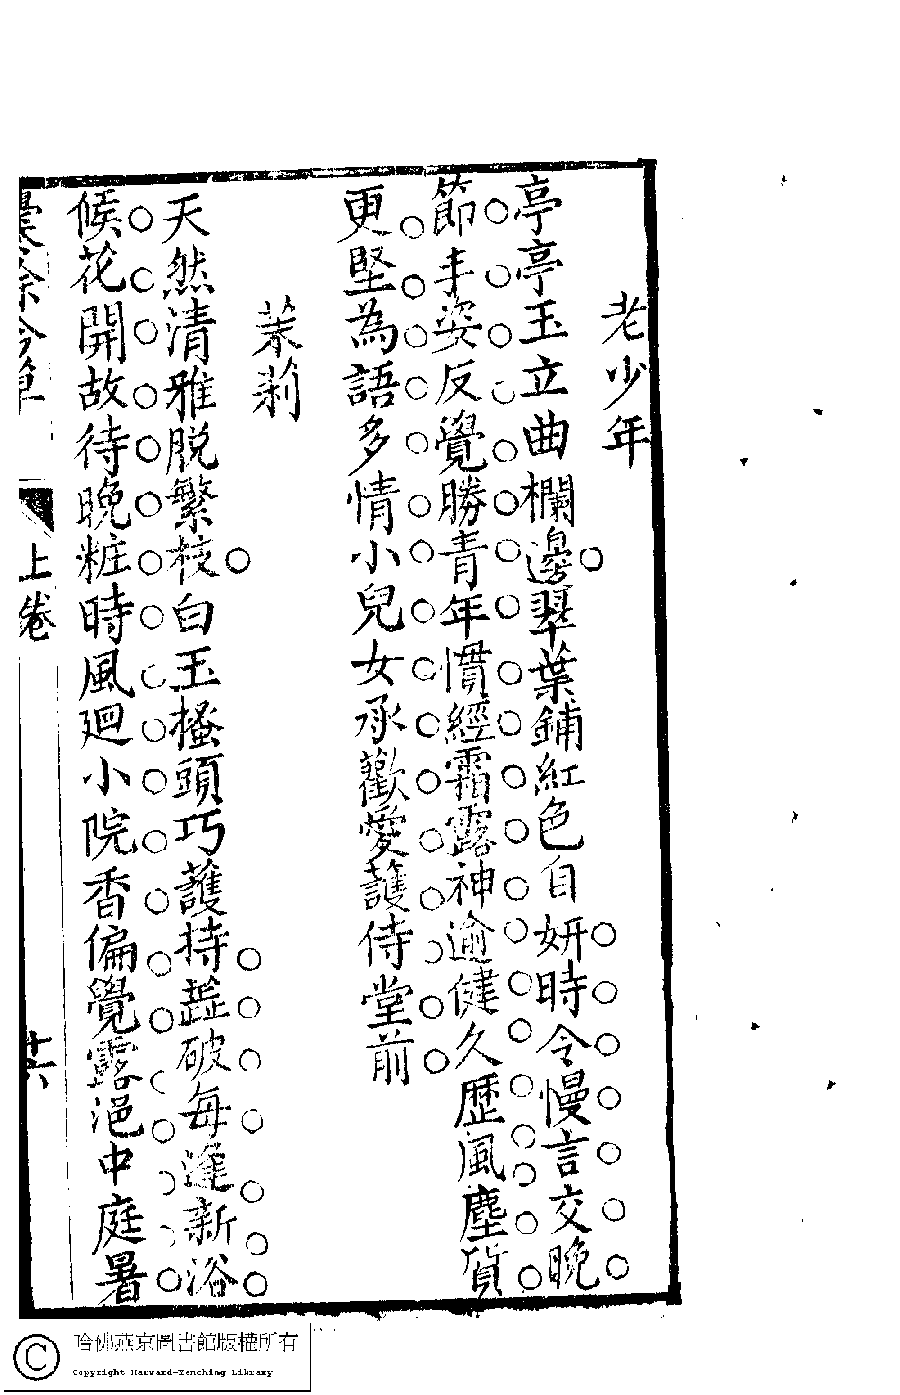 老少年
亭亭玉立曲欄邊翠葉鋪紅色自妍時令慢言交晚
節丰姿反覺勝青年慣經霜露神逾健久歷風塵質
更堅為語多情小兒女承歡愛護侍堂前
茉莉
天然清雅脱繁枝白玉搔頭巧護持蕋破每逢新浴
候花開故待晚粧時風廻小院香偏覺露浥中庭暑
上卷
十六
哈佛燕京圖書館版權所有
Copyright Harvard-Yenching Library